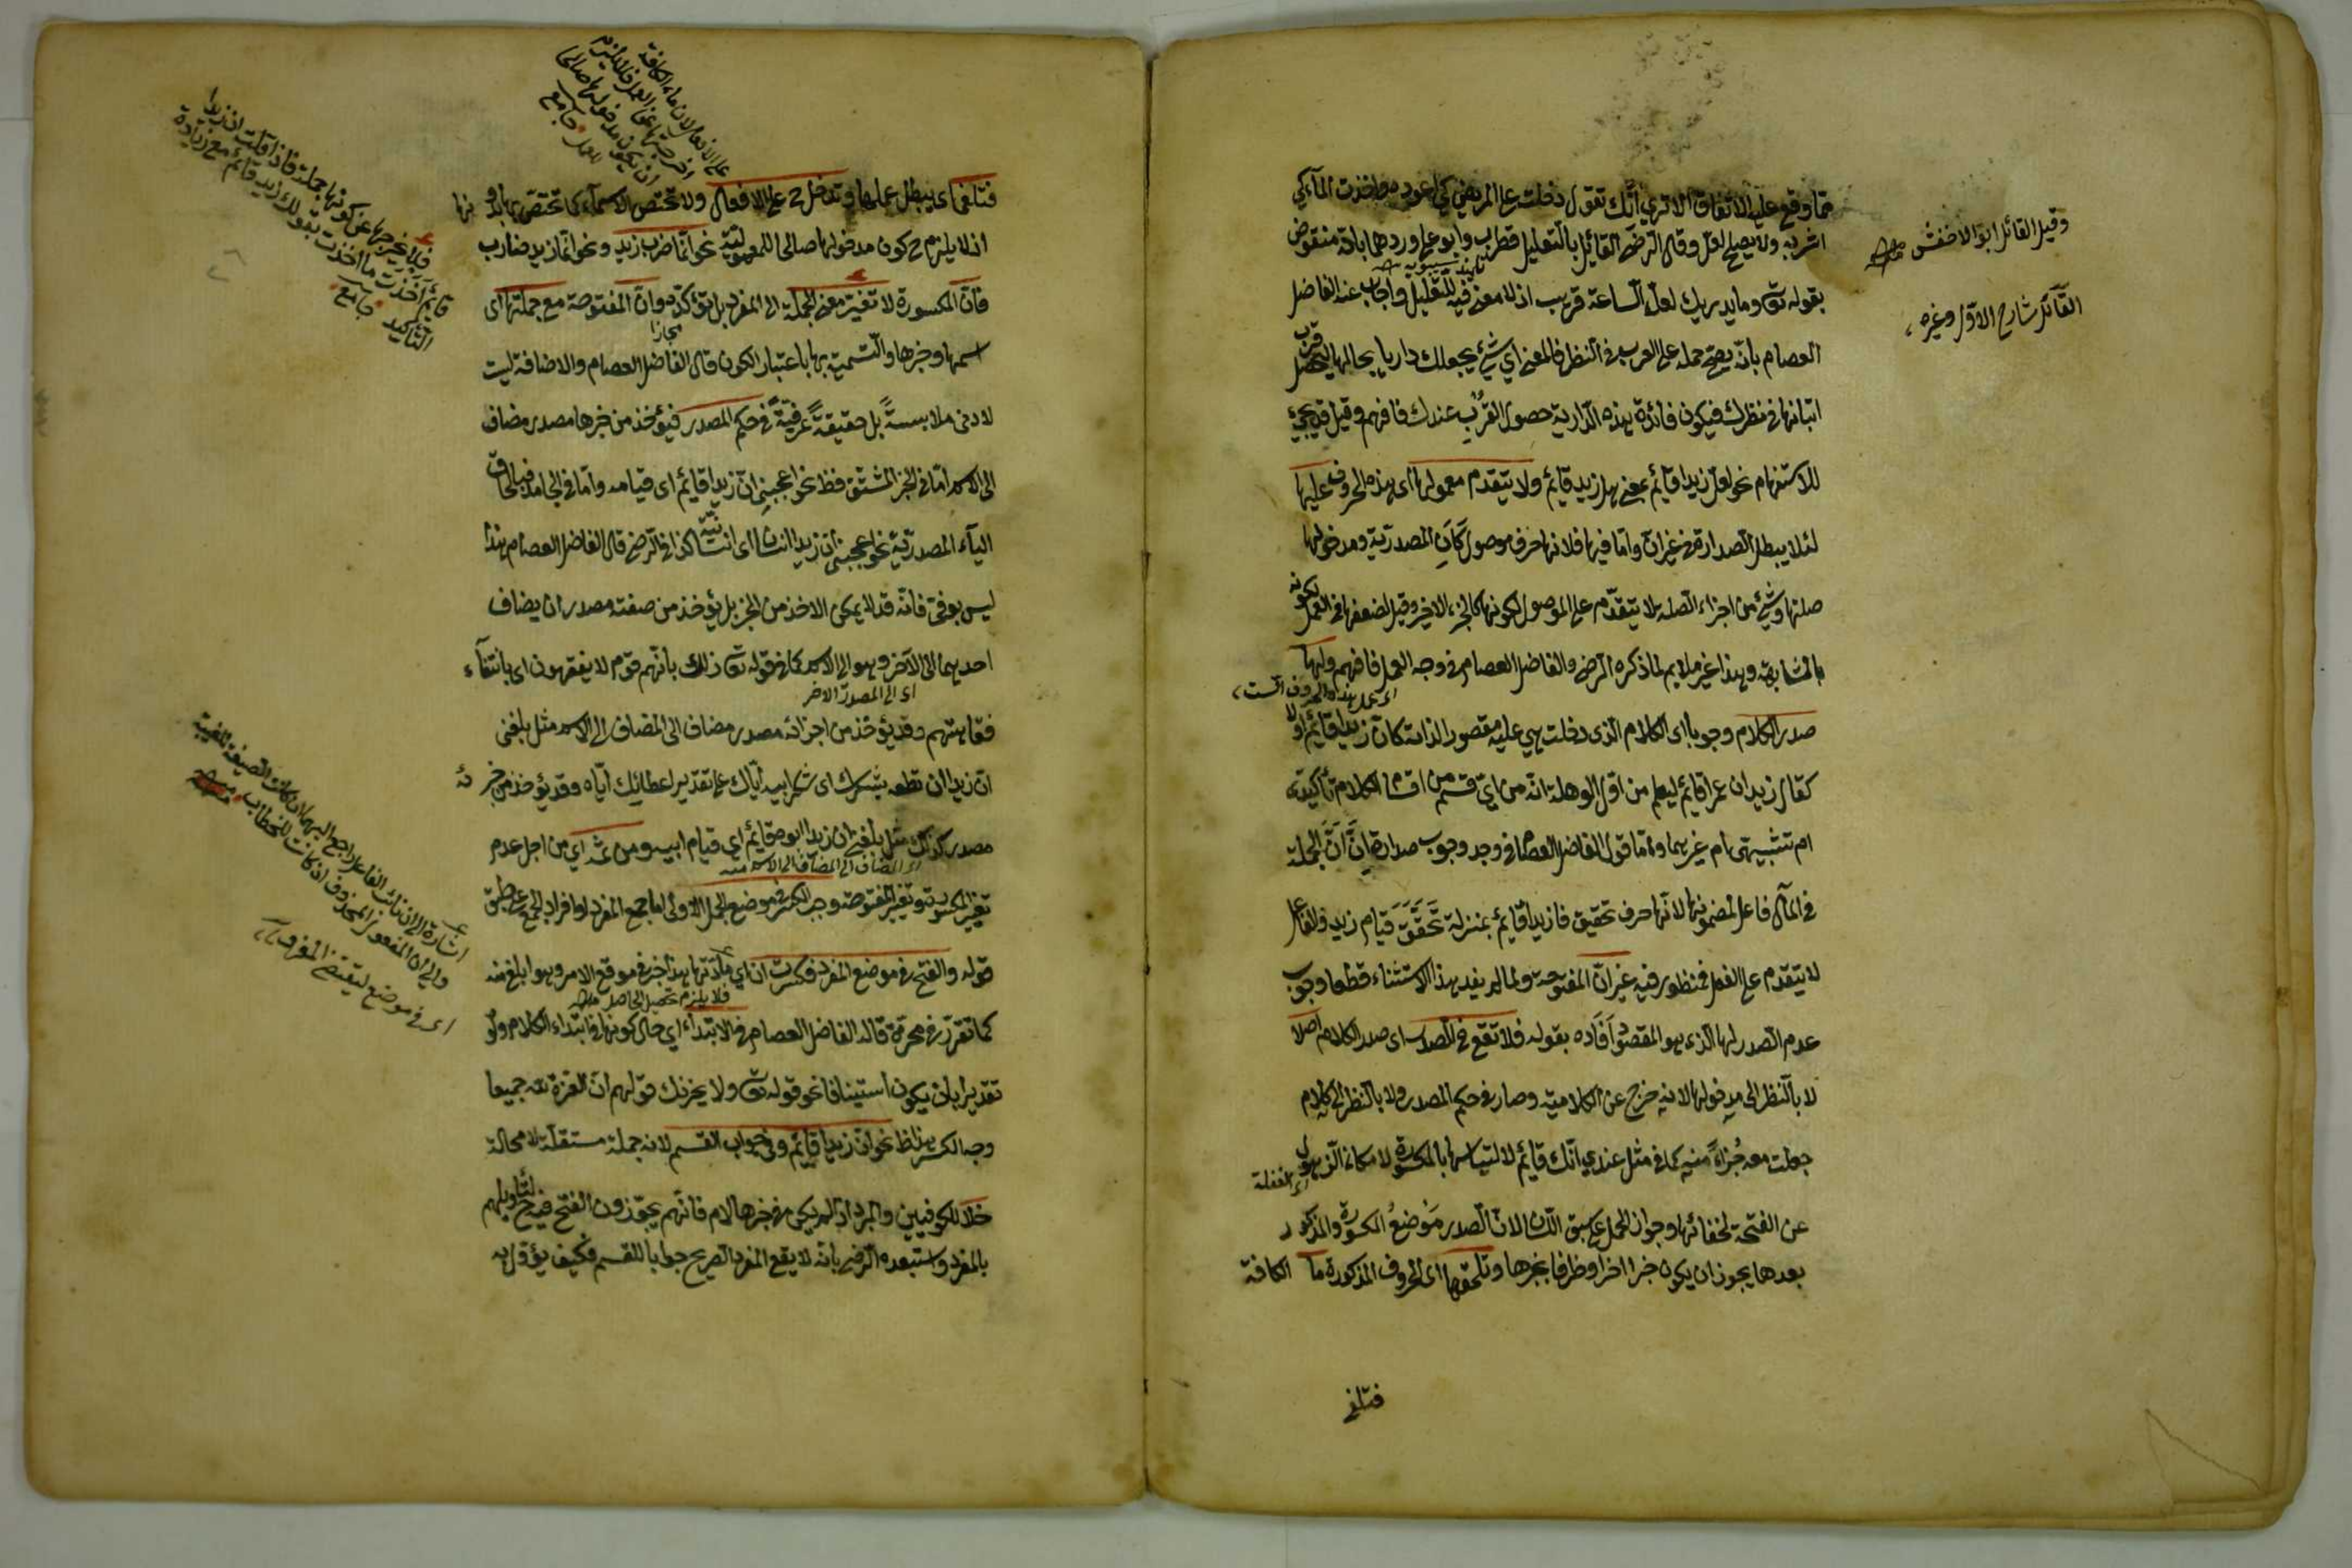 فما وقع عليه الاتفاق الا تري انّك تقول دخلت على المريض كي اعوده واخذت المآء كي
اشربه ولا يصلح لعلّ وقال الرّضي القائل بالتّعليل قطرب وابو علي وردهما بانّه منقوض
بقوله تعالى وما يدريك لعلّ السّاعة قريب اذ لا معنى فيه للتّعليل واجاب عنه الفاضل
العصام بانّه يصحّ حمله على القرب في النّظر فالمعنى اي شيء يجعلك داريا بحالها ليحصل قرب
اتيانها في نظرك فيكون فائدة هذه الدّارية حصول القُرب عندك فافهم وقيل قد يجيء
للاستفهام نحو لعلّ زيدا قايم بمعنى هل زيد قايم ولا يتقدم معمولها اى هذه الحروف عليها
لئلا يبطل الصّدارة في غير انّ وامّا فيها فلانها حرف موصول كَاَنِ المصدريّة ومدخولها
صلتها وشيء من اجزاء الصّلة لا يتقدّم على الموصول لكونها كالجزء الاخير وقيل لضعفها في العمل لكونه
بالمشابهة وهذا غير ملايم لما ذكره الرضي والفاضل العصام في وجه العمل فافهم ولها
صدر الكلام وجوبا اى الكلام الذى دخلت هي عليه مقصور الذاته كان زيدا قايم اولا
كقال زيد ان عمرا قايم ليعلم من اوّل الوهلة انّه من ايّ قسم من اقسام الكلام تأكيديّ
ام تشبيهيّ ام غيرهما وامّا قول الفاضل العصام في وجه وجوب صدارة انّ انّ الجملة
في المآل فاعل لمضمونها لانّها حرف تحقيق فان زيدا قايم بمنزلة تَحَقَّقَ قيام زيد والفاعل
لا يتقدم على الفعل فمنظور فيه غير انّ المفتوحة ولما لم يفد هذا الاستثناء قطعا وجوب
عدم الصّدر لها الّذى هو المقصود اَفاده بقوله فلا تقع في الصّدر اى صدر الكلام اصلا
لا بالّنظر الى مدخولها لانه خرج عن الكلاميّة وصار في حكم المصدر ولا بالنّظر الى كلام
جعلت معه جُزاءً منه كما في مثل عندي انّك قايم لالتباسها بالمكسورة لامكان الذهول
عن الفتحة لخفائها وجواز الحمل على سبق اللّسان لانّ الصدر مَوْضعُ المكسورة والمذكور
بعدها يجوز ان يكون خبرا اخر او ظرفا بخبرها وتلحقها اى الحروف المذكورة ما الكافة
فتلغى
وقيل القائل ابو الاخفش منه
القآئل شارح الاوّل وغيره
اى عمل هذه الحروف الستّ
اى الغفلة
فتلغى اى يبطل عملها وتدخل ح على الافعال ولا تختصّ الاسمآء كما تختصّ بها بدونها
اذ لا يلزم ح كون مدخولها صالحا للمعموليّة نحو انّما ضرب زيد ونحو انّما زيد ضارب
فانّ المكسورة لا تغيّر معنى الجملة الى المفرد بل تؤكّده وانّ المفتوحة مع جملتها اى
اسمها وخبرها والتّسمية بها باعتبار الكون قال الفاضل العصام والاضافة ليست
مجازا
لادنى ملابسةً بل حقيقةً عرفيّةً في حكم المصدر فيؤخذ من خبرها مصدر مضاف
الى الاسم امّا في الخبر المشتق فظ نحو اعجبني انّ زيدا قايم اى قيامه وامّا في الجامد فبالحاق
اليآء المصدريّة نحو اعجبني انّ زيدا انسان اى انسانيّته كذا في الرّضي قال الفاضل العصام هذا
ليس بوفيّ فانّه قد لا يمكن الاخذ من الخبر بل يؤخذ من صفته مصدران يضاف
احدهما الى الآخر وهو الى الاسم كما في قوله تعالى ذلك بانّهم قوم لا يفقهون اى بانتفآء
اى الى المصدر الاخر
فقاهتهم وقد يؤخذ من اجزائه مصدر مضاف الى المضاف الى الاسم مثل بلغني
انّ زيدا ان تعطه يشكرك اى شكرا بيه ايّاك على تقدير اعطائك ايّاه وقد يؤخذ من جزئه
مصدر كذلك مثل بلغني انّ زيدا ابوه قائم اي قيام ابيه ومن ثمّه اي من اجل عدم
اى المضاف الى المضاف الى الاسم منه
تغيّر المكسورة وتغيّر المفتوحة وجب الكسر في موضع الجمل
قوله والفتح في موضع المفرد فكسرت ان اي مادّتها هذا خبر في موقع الامر وهو ابلغ منه
فلا يلزم تحصيل الحاصل منه
كما تقرّر في محرة قاله الفاضل العصام في الابتداء اي حال كونها في ابتداء الكلام ولو
تقديرا بان يكون استينافا نحو قوله تعالى ولا يحزنك قولهم انّ العزة لله جميعا
وجه الكسر هذا ظ نحو انّ زيدا قايم وفي جواب القسم لانه جملة مستقلّة لا محالة
خلافا للكوفيين والمبرد اذ لم يكن في خبرها لام فانّهم يجوّزون الفتح فيه ح لتأويلهم
بالمفرد واستبعده الرّضي بانّه لا يقع المفرد الصريح جوابا للقسم فكيف يؤوّل به
على الافعال لان ماء الكافة
اخرجتها عن العمل فلا يلزم
ان يكون مدخولها صالحا
للعمل جامع
فلا يخرجها عن كونها جملة فاذا قلت ان زيدا
قايم اخذت ما اخذت بقولك زيد قائم مع زيادة
التّاكيد جامع
اشارة الى ان نائب الفاعل راجع اليها
والى ان المفعول المحذوف اذ كانت للخطاب منه
اى في موضع ليقتضي المفرد